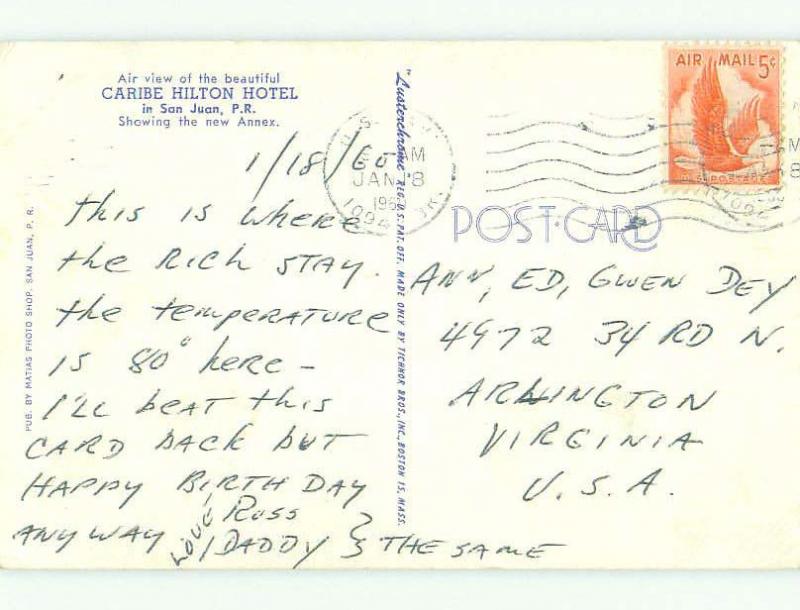 Air view of the beautiful
CARIBE HILTON HOTEL
in San Juan, P.R.
Showing the new Annex.
1/18/60
This is where
the Rich STAY.
the temperature
is 80° here –
I'll beat this
CARD BACK but
HAPPY BIRTHDAY
ANYWAY
LOVE, Ross
DADDY } THE SAME
PUB. BY MATIAS PHOTO SHOP, SAN JUAN, P. R.
"Lusterchrome" REG. U.S. PAT. OFF. MADE ONLY BY TICHNOR BROS., INC., BOSTON 15, MASS.
AM
JAN 18
1094
AIR MAIL 5¢
POST-CARD
ANN, ED, GWEN DEY
4972 34 RD N.
ARLINGTON
VIRGINIA
U.S.A.